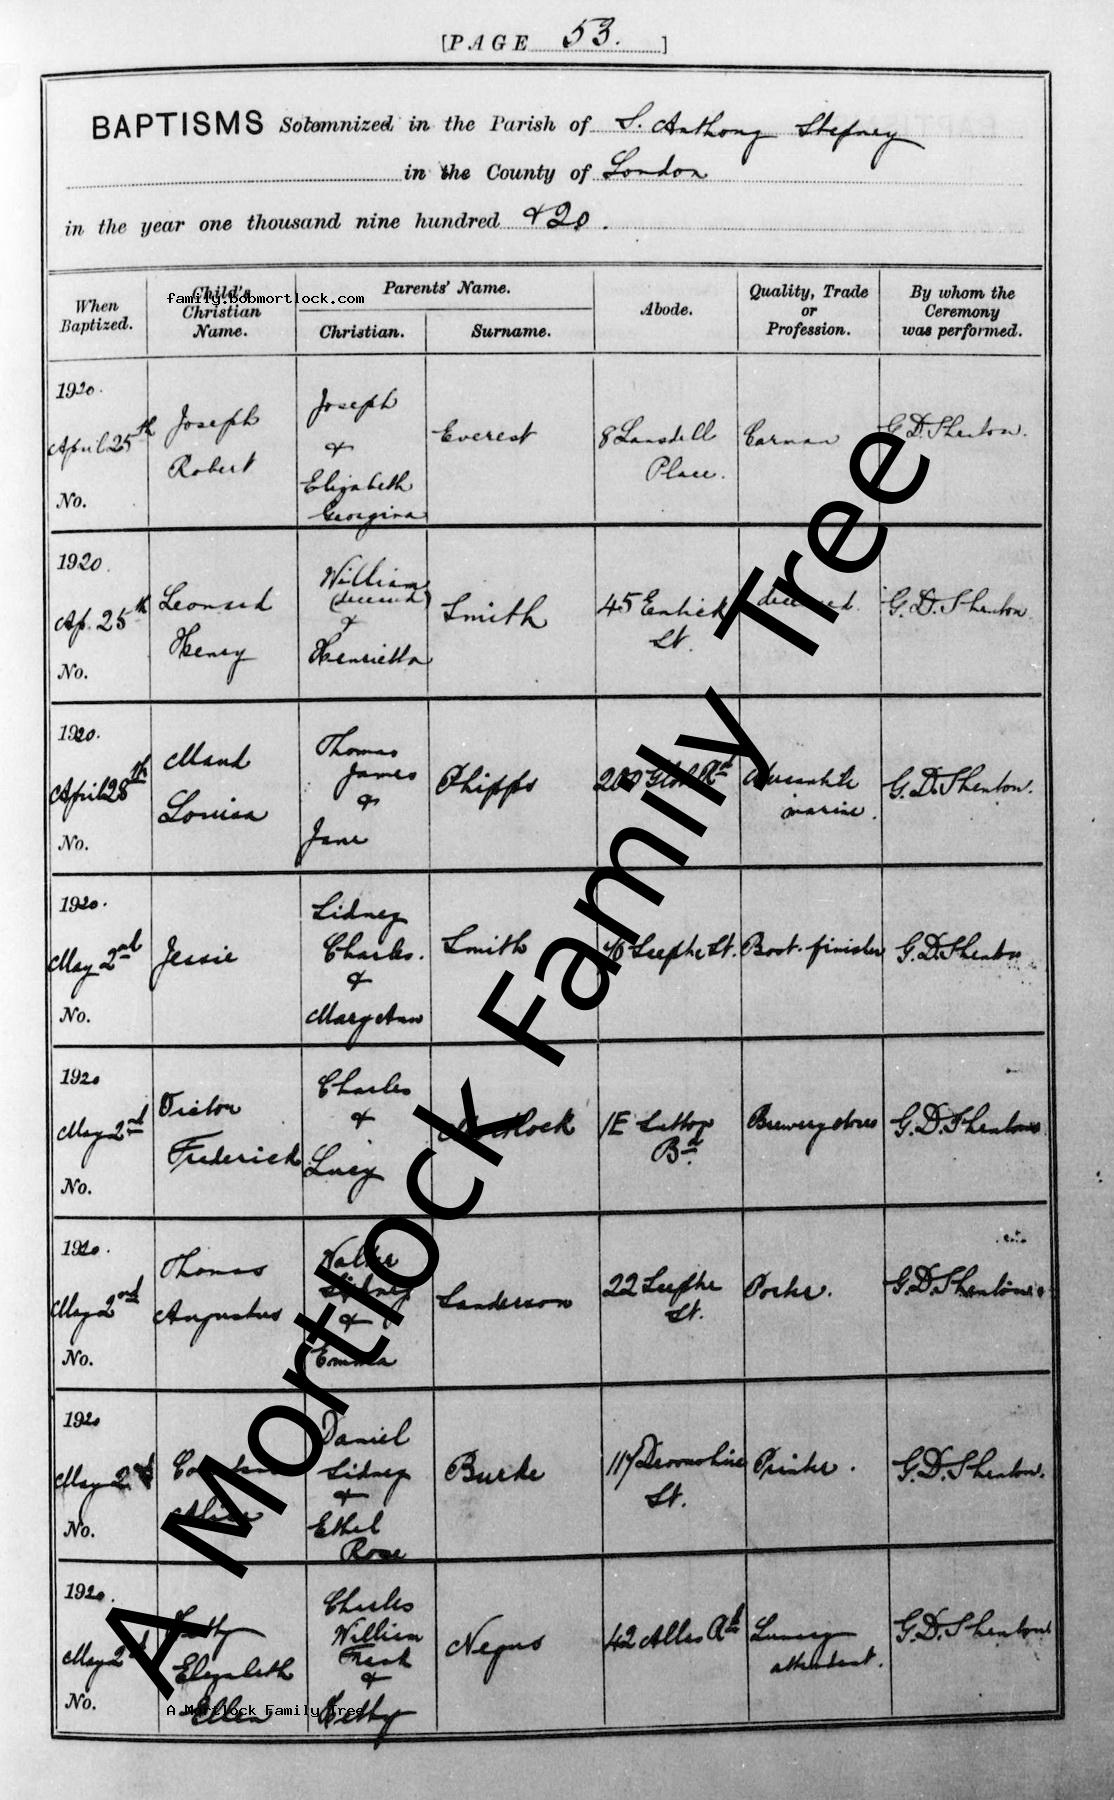 [PAGE 53.]
BAPTISMS Solemnized in the Parish of S. Anthony Stepney
in the County of London
in the year one thousand nine hundred & 20.
When Baptized.
Child's Christian Name.
Parents' Name.
Christian.
Surname.
Abode.
Quality, Trade or Profession.
By whom the Ceremony was performed.
family.bobmortlock.com
1920.
April 25th
No.
Joseph
Robert
Joseph
&
Elizabeth
Georgina
Everest
8 Lansdell
Place.
Carman
G. D. Shenton.
1920.
Ap. 25th
No.
Leonard
Henry
William
(deceased)
&
Henrietta
Smith
45 Entick
St.
deceased.
G. D. Shenton
1920.
April 28th
No.
Maud
Louisa
Thomas
James
&
Jane
Phipps
200 Globe Rd
Mercantile
marine.
G. D. Shenton.
1920.
May 2nd
No.
Jessie
Sidney
Charles.
&
Mary Ann
Smith
St.
Boot-finisher
G. D. Shenton
1920
May 2nd
No.
Victor
Frederick
Charles
&
Lucy
Mortlock
1E
Bd.
Brewery stores
G. D. Shenton
1920.
May 2nd
No.
Thomas
Augustus
Walter
Sidney
&
Emma
Sanderson
22
St.
Porter.
G. D. Shenton
1920
May 2nd
No.
Alice
Daniel
Sidney
&
Ethel
Rose
Burke
117 Devonshire
St.
Printer.
G. D. Shenton.
1920.
May 2nd
No.
Elizabeth
Ellen
Charles
William
&
Hetty
Negus
42 Allas Rd
attendant.
G. D. Shenton
A Mortlock Family Tree
A Mortlock Family Tree